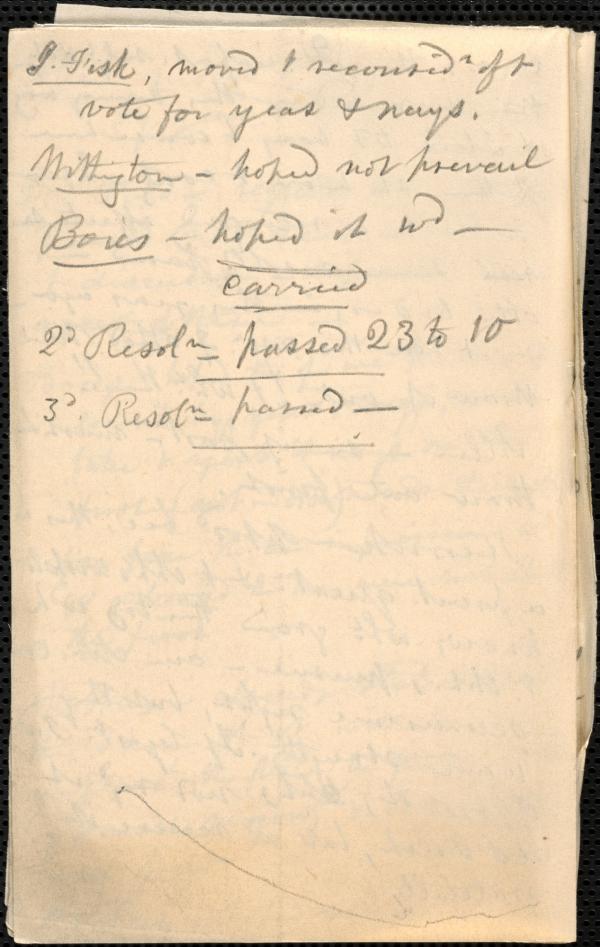 J. Fisk, moved t reconsidn of t
vote for yeas & nays.
Withington - hoped not prevail
Boies - hoped it wd —
carried
2d Resoln passed 23 to 10
3d. Resoln passed —